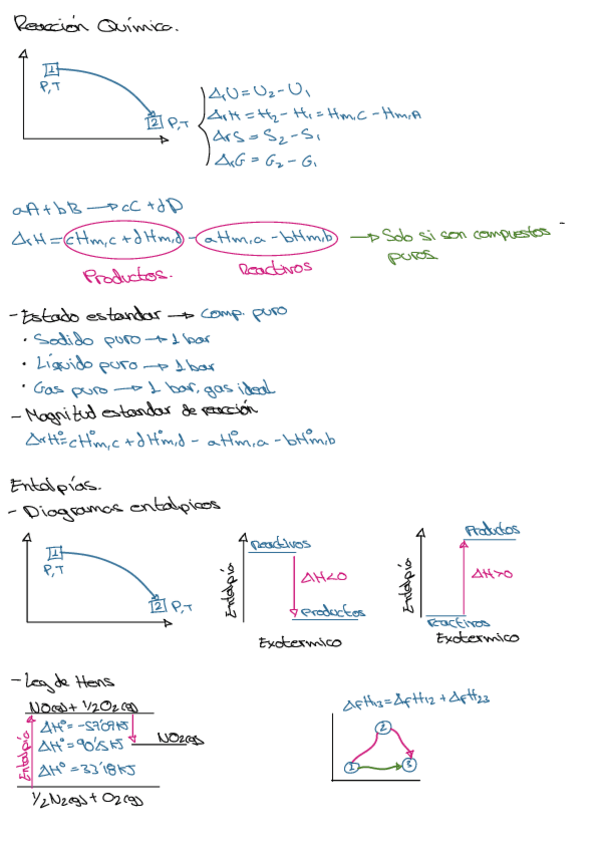 Reacción Química.
1
P,T
2 P,T
ΔrU = U2 - U1
ΔrH = H2 - H1 = Hm,C - Hm,A
ΔrS = S2 - S1
ΔrG = G2 - G1
aA + bB → cC + dD
ΔrH = cHm,c + dHm,d - aHm,a - bHm,b → Solo si son compuestos
puros
Productos.
Reactivos
- Estado estandar → comp. puro
• Solido puro → 1 bar
• Líquido puro → 1 bar
• Gas puro → 1 bar, gas ideal
- Magnitud estandar de reacción
ΔrH° = cH°m,c + dH°m,d - aH°m,a - bH°m,b
Entalpías.
- Diagramas entalpicos
1
P,T
2 P,T
Entalpía
Reactivos
ΔH<0
Productos
Exotermico
Entalpía
Productos
ΔH>0
Reactivos
Exotermico
- Ley de Hens
NO(g) + 1/2 O2(g)
ΔH° = -57'07 kJ
ΔH° = 90'25 kJ
NO2(g)
ΔH° = 33'18 kJ
Entalpía
1/2 N2(g) + O2(g)
ΔfH13 = ΔfH12 + ΔfH23
2
1
3